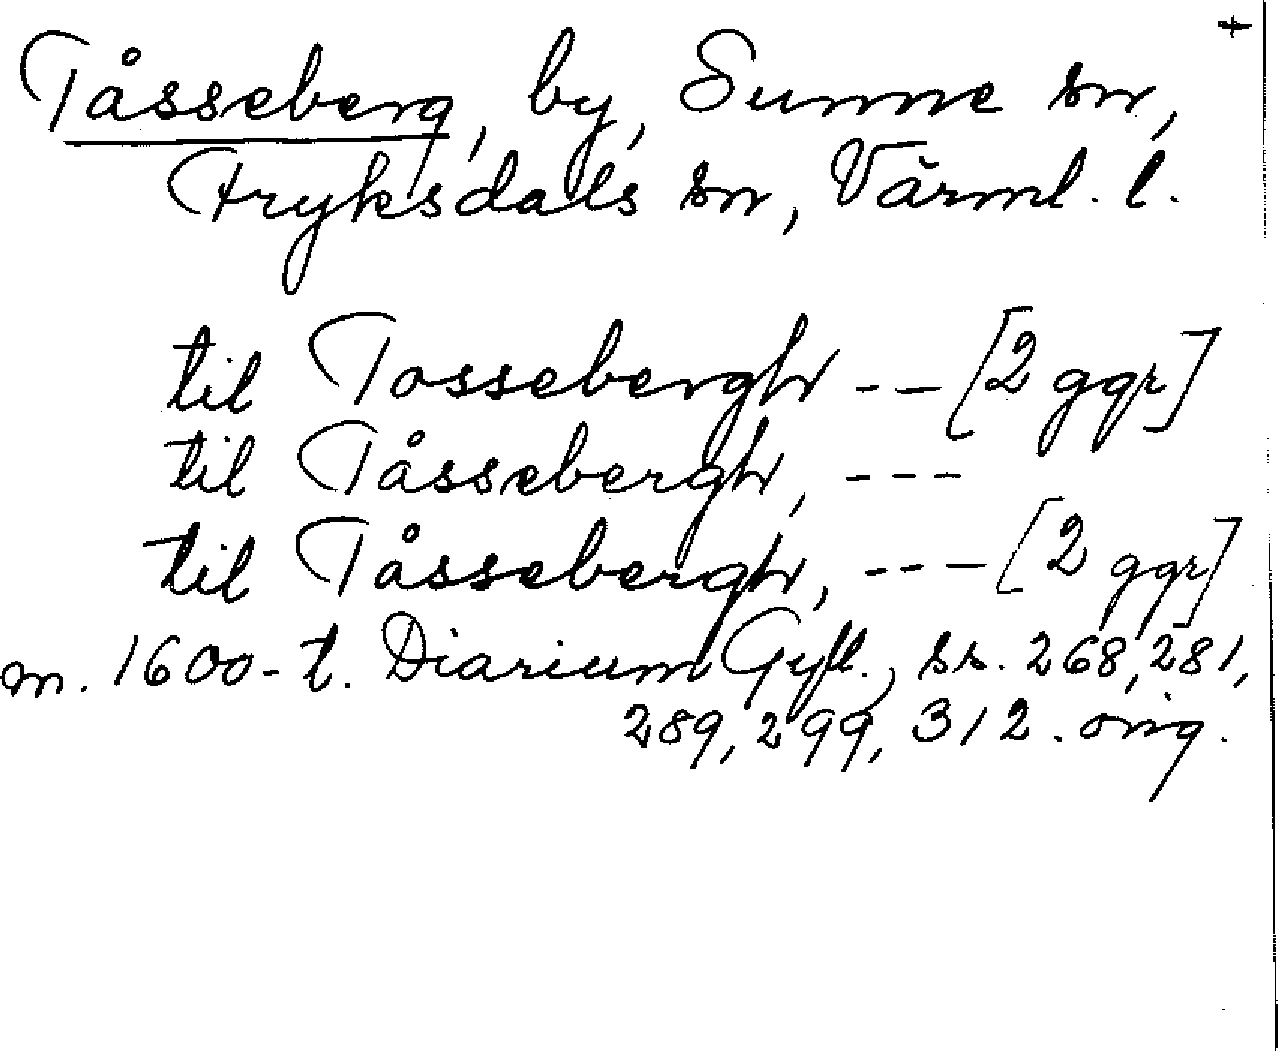 +
Tåsseberg, by, Sunne sn,
Fryksdals sn, Värml. l.
til Tossebergh -- [2 ggr]
til Tåssebergh, ---
til Tåssebergh, --- [2 ggr]
m. 1600-t. Diarium Gyll., ss. 268, 281,
289, 299, 312. orig.